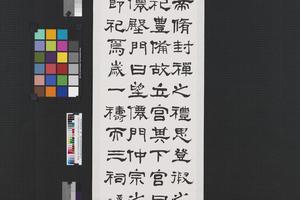 脩封禪之禮思登徦
祀豐備故立宮其下宮
僊殿門曰望僊門仲宗
祀焉歲一禱而三祠